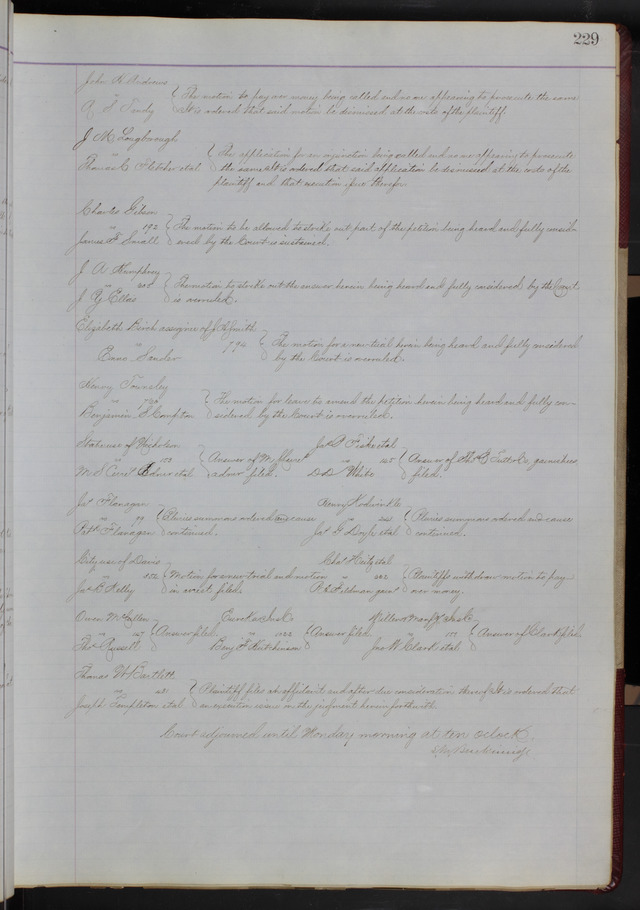 229
John H Andrews
vs The motion to pay over money being called and no one appearing to prosecute the same
A S Tandy It is ordered that said motion be dismissed at the costs of the plaintiff.
J M Longborough
vs The application for an injunction being called and no one appearing to prosecute
Thomas C Fletcher etal the same It is ordered that said application be dismissed at the costs of the
plaintiff and that execution issue therefor
Charles Gibson
192 The motion to be allowed to strike out part of the petition being heard and fully consid-
James F Small ered by the Court is sustained.
J A Humphrey
vs The motion to strike out the answer herein being heard and fully considered by the Court
J Y Ellas is overruled.
Elizabeth Birch assignee of Smith
vs 794 The motion for a new trial herein being heard and fully considered
Sander by the Court is overruled.
Henry Townsley
vs The motion for leave to amend the petition herein being heard and fully con-
Benjamin S Compton sidered by the Court is overruled.
State use of Nicholson Jas P Fiske etal
vs Answer of vs Answer of Garnishees
admr etal admr filed. D D White filed.
Jas Flanagan Henry
vs 99 Pluries summons ordered and cause vs Pluries summons ordered and cause
Flanagan continued. Jas G Doyle etal continued.
City use of Davis Chas etal
vs Motion for a new trial and motion vs Plaintiffs withdraw motion to pay
Jas B Kelly in arrest filed. Feldman over money.
Owen McCullen Eureka Insk Co Millers Manf Insk Co
vs Answer filed vs Answer filed vs Answer of Clark filed.
Thos Russell Benj F Hutchinson Jno W Clark etal
Thomas W Bartlett
vs Plaintiff files an affidavit and after due consideration thereof It is ordered that
Joseph Templeton etal an execution issue on the judgment herein forthwith
Court adjourned until Monday morning at ten oclock.